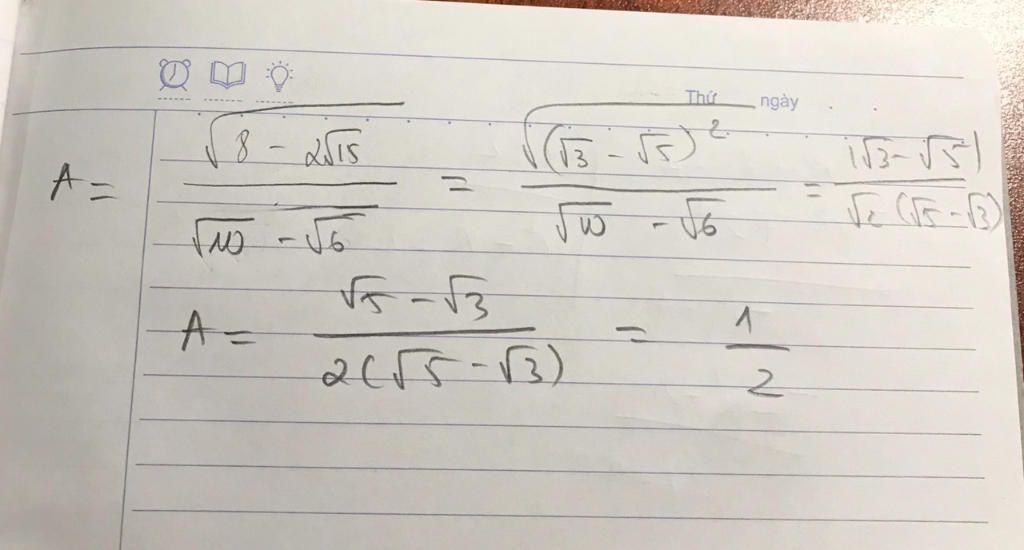 Thứ ngày
A = √(8 - 2√15) / (√10 - √6) = √((√3 - √5)²) / (√10 - √6) = |√3 - √5| / (√2 (√5 - √3))
A = (√5 - √3) / (2(√5 - √3)) = 1/2